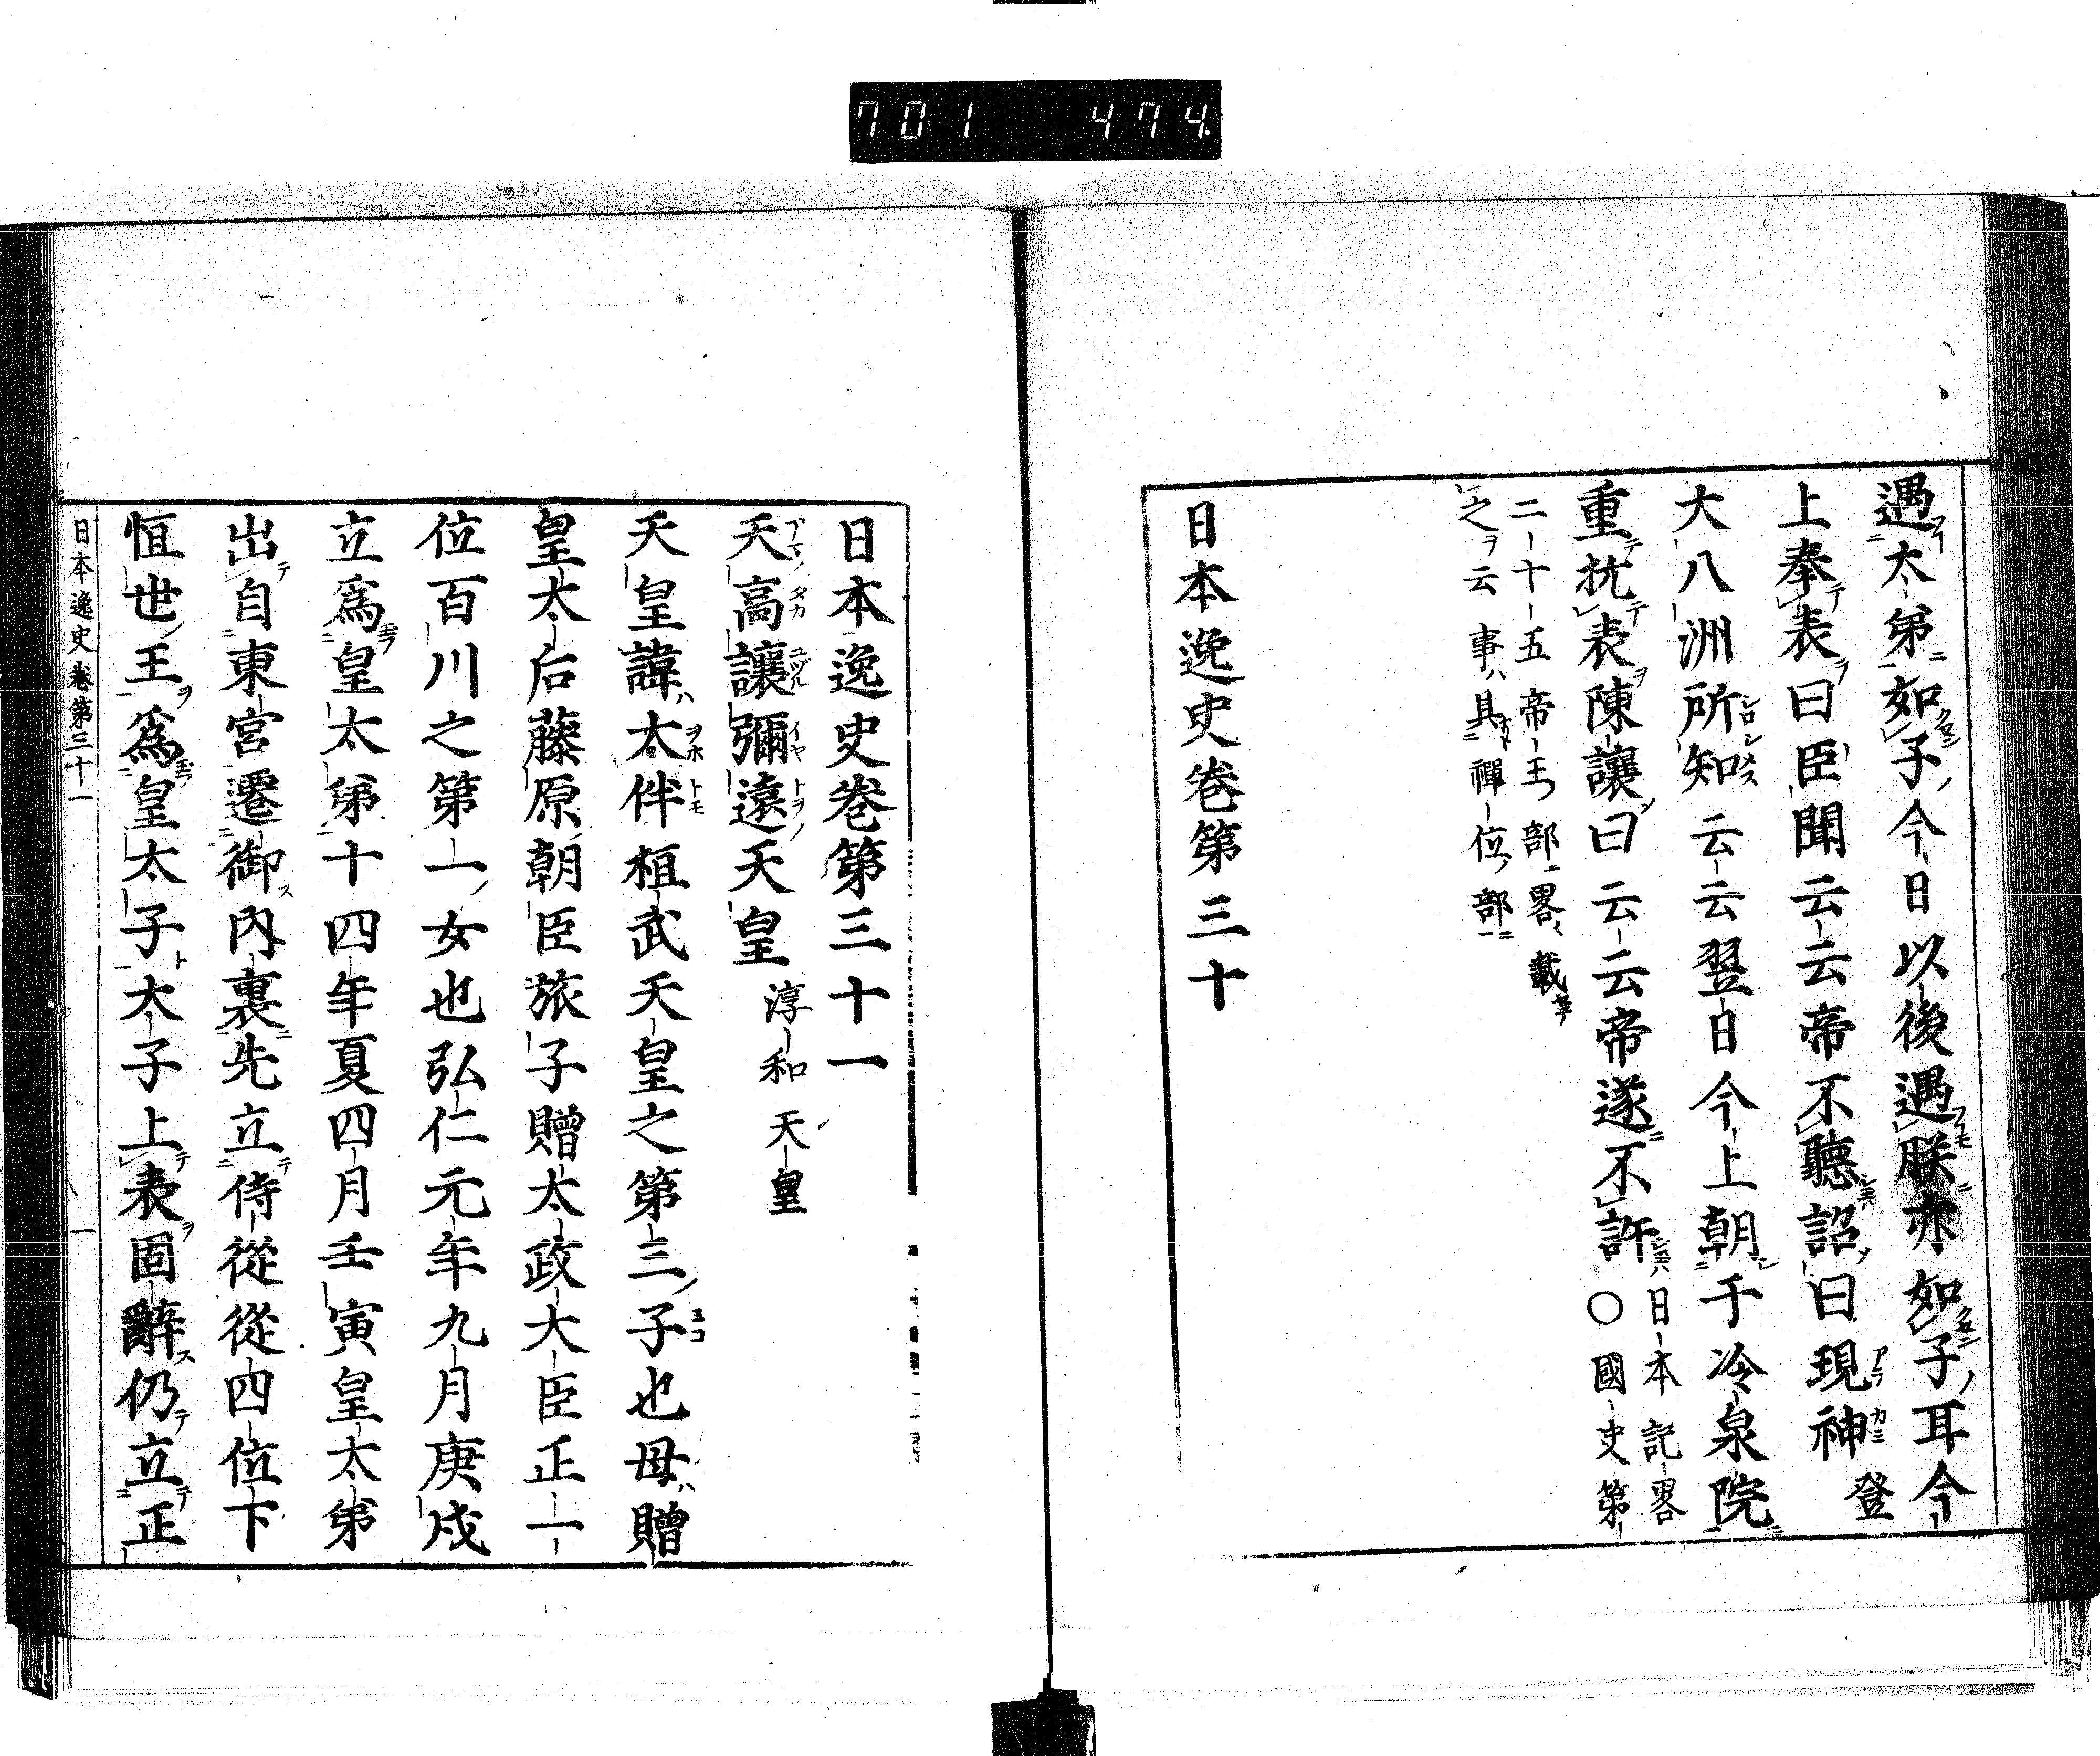 701 474.
遇太弟如子今日以後遇朕亦如子耳今
上奉表曰臣聞云云帝不聽詔曰現神登
大八洲所知云云翌日今上朝于冷泉院
重抗表陳讓曰云云帝遂不許日本記畧
○國史第
二十五帝王部畧載
之云事具禪位部
日本逸史卷第三十
日本逸史卷第三十一
天高讓彌遠天皇淳和天皇
天皇諱大伴桓武天皇之第三子也母贈
皇太后藤原朝臣旅子贈太政大臣正一
位百川之第一女也弘仁元年九月庚戌
立爲皇太弟十四年夏四月壬寅皇太弟
出自東宮遷御內裏先立侍從從四位下
恒世王爲皇太子太子上表固辭仍立正
日本逸史卷第三十一 一